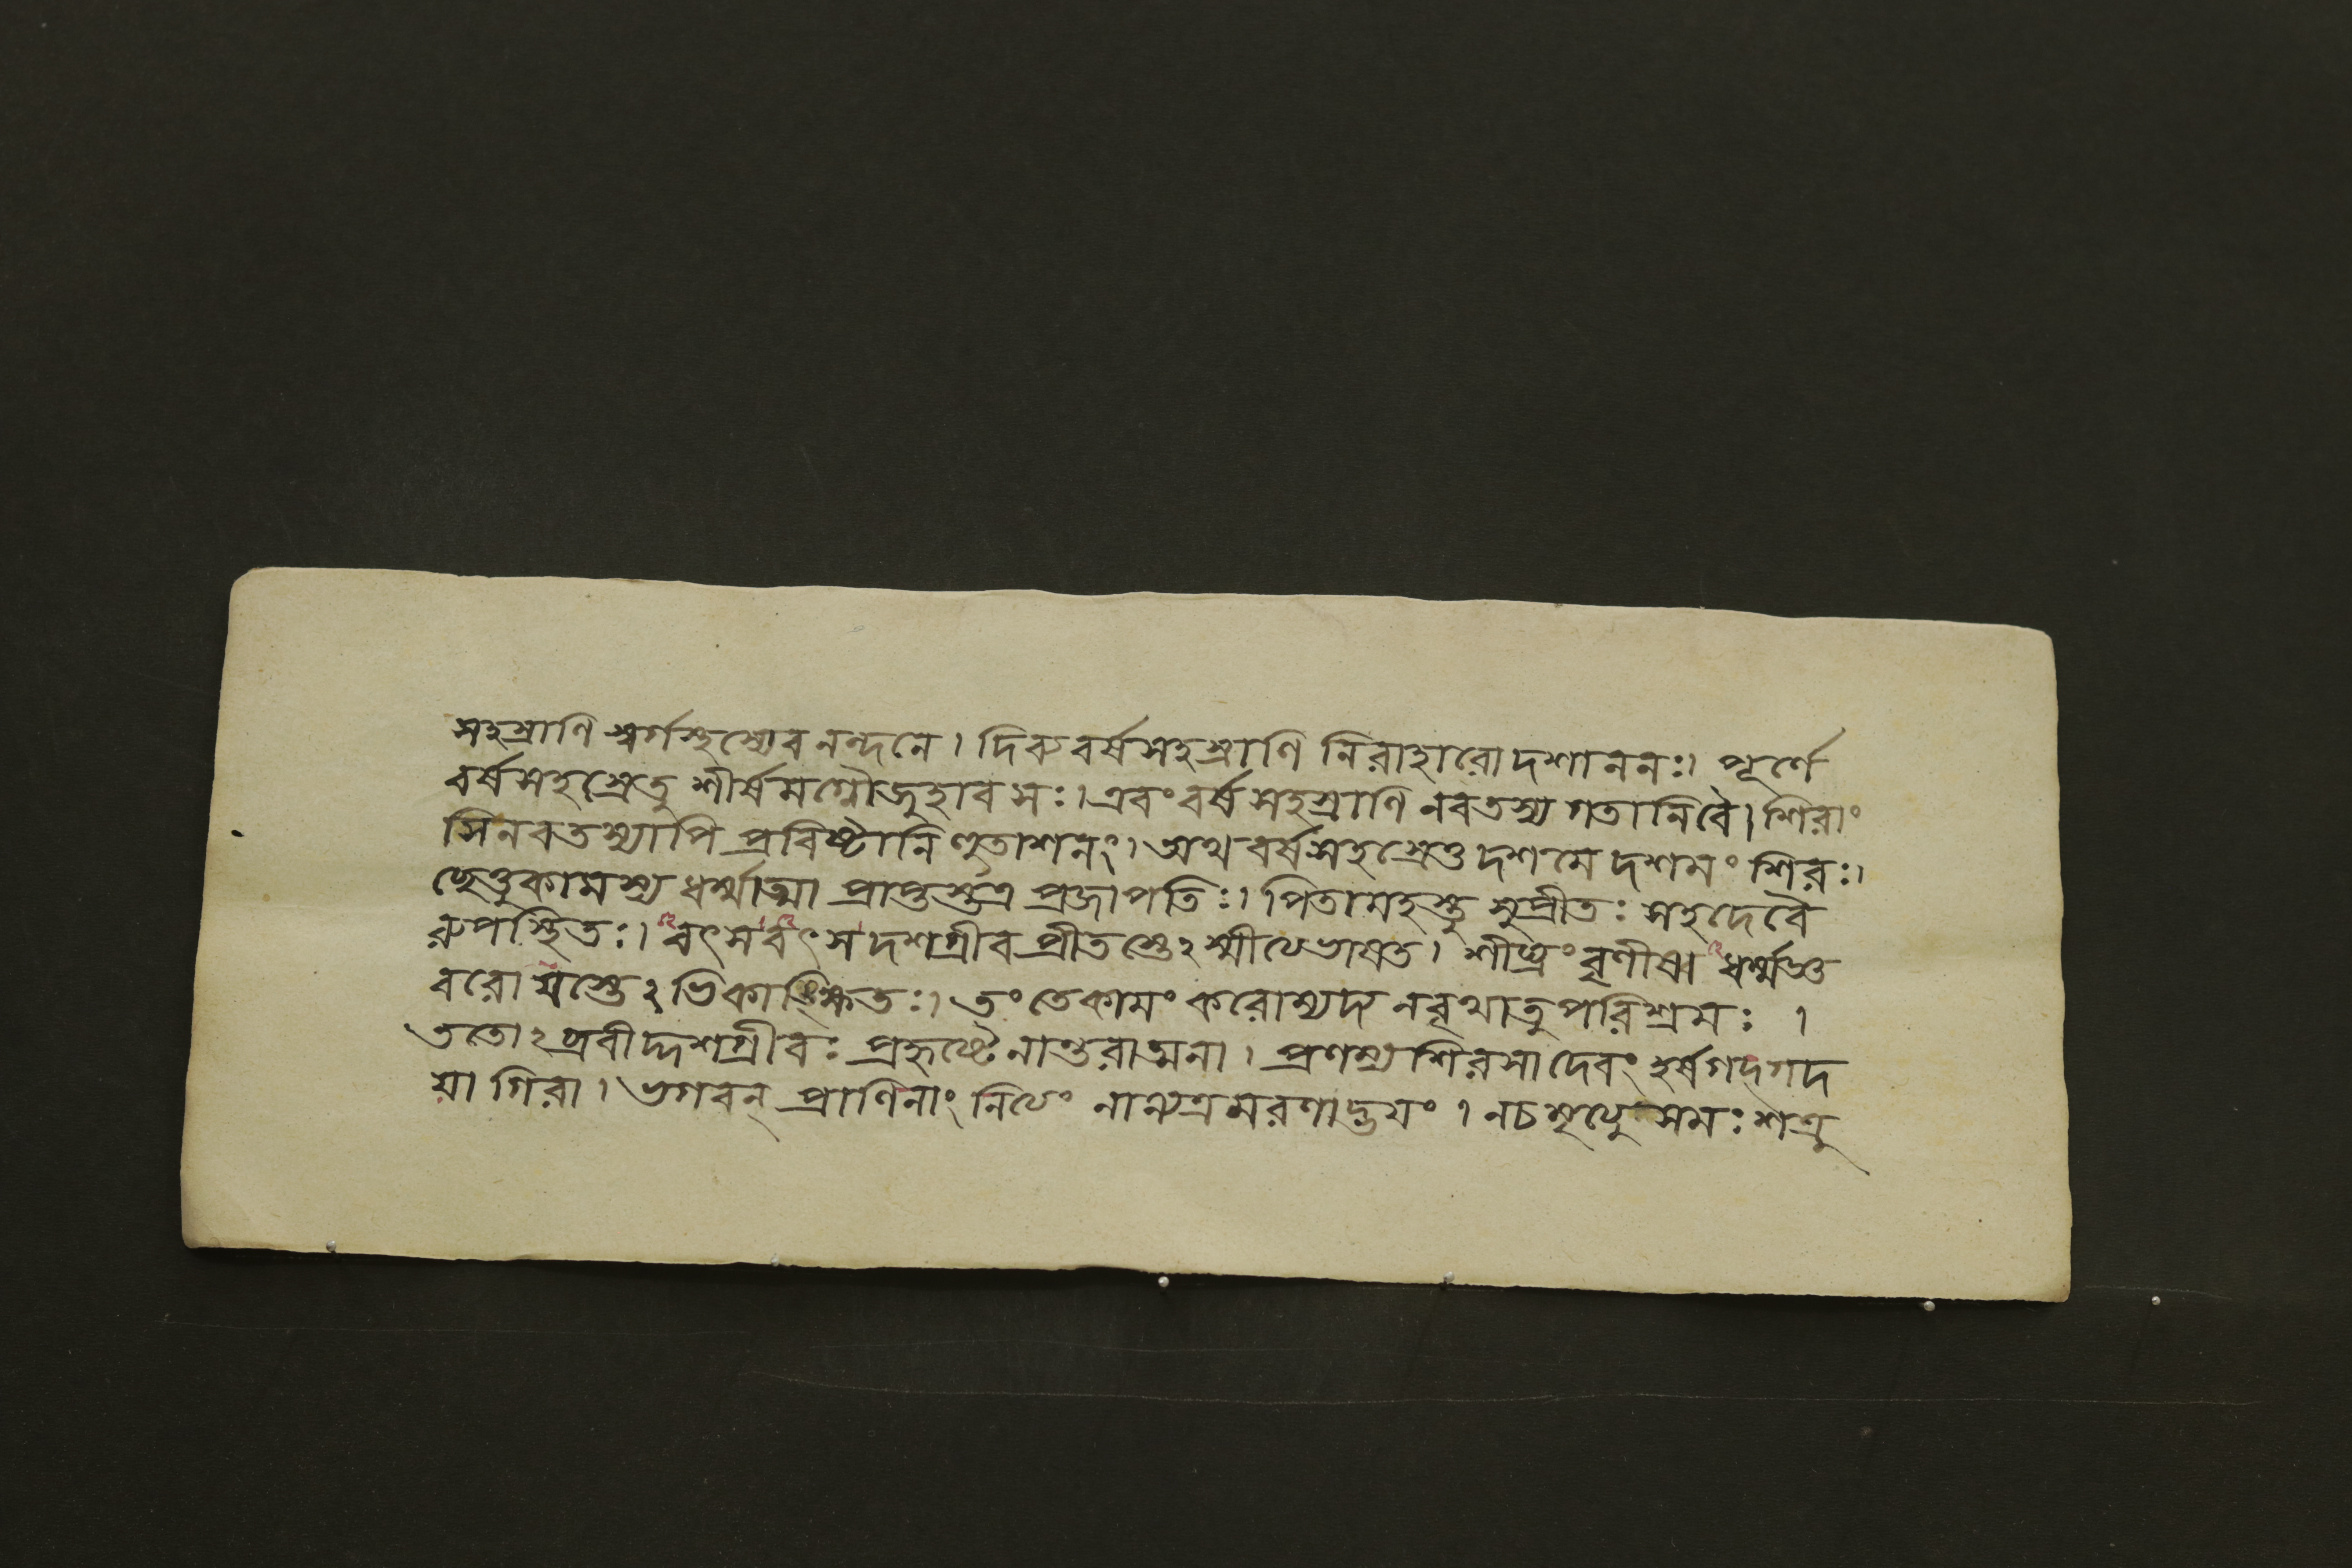 সহস্রাণি স্বর্গস্থস্যেব নন্দনে। দিব্যবর্ষসহস্রাণি নিরাহারো দশাননঃ। পূর্ণে
বর্ষসহস্রেতু শীর্ষমগ্নৌ জুহাব সঃ। এবং বর্ষসহস্রাণি নবতস্য গতানি বৈ। শিরাং
সি নবতস্যাপি প্রবিষ্টানি হুতাশনং। অথ বর্ষসহস্রেতু দশমে দশমং শিরঃ।
ছেত্তুকামস্য ধর্ম্মাত্মা প্রাপ্তস্তত্র প্রজাপতিঃ। পিতামহস্তু সুপ্রীতঃ সহ দেবৈ
রুপস্থিতঃ। বৎস বৎস দশগ্রীব প্রীতস্তেঽস্মীত্যভাষত। শীঘ্রং বৃণীষ্ব ধর্ম্মজ্ঞ
বরো যস্তেঽভিকাঙ্ক্ষিতঃ। তং তে কামং করোম্যদ্য ন বৃথা তু পরিশ্রমঃ ।
ততোঽব্রবীদ্দশগ্রীবঃ প্রহৃষ্টেনান্তরাত্মনা। প্রণম্য শিরসা দেবং হর্ষগদ্গদ
য়া গিরা। ভগবন্ প্রাণিনাং নিত্যং নান্যত্র মরণাদ্ভয়ং । ন চ মৃত্যু সমঃ শত্রু